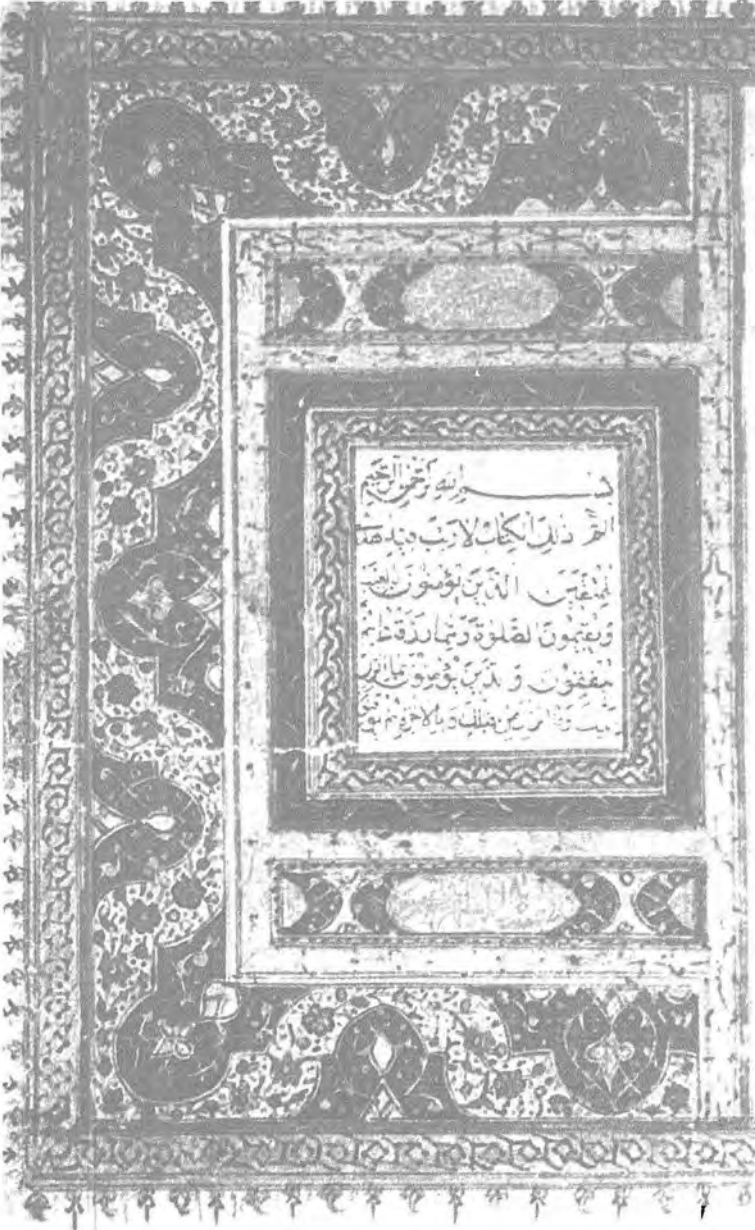 بسم الله الرحمن الرحيم
الم ذلك الكتاب لا ريب فيه هدى
للمتقين الذين يؤمنون بالغيب
ويقيمون الصلوة ومما رزقناهم
ينفقون والذين يؤمنون بما انزل
اليك وما انزل من قبلك وبالاخرة هم يوقنون